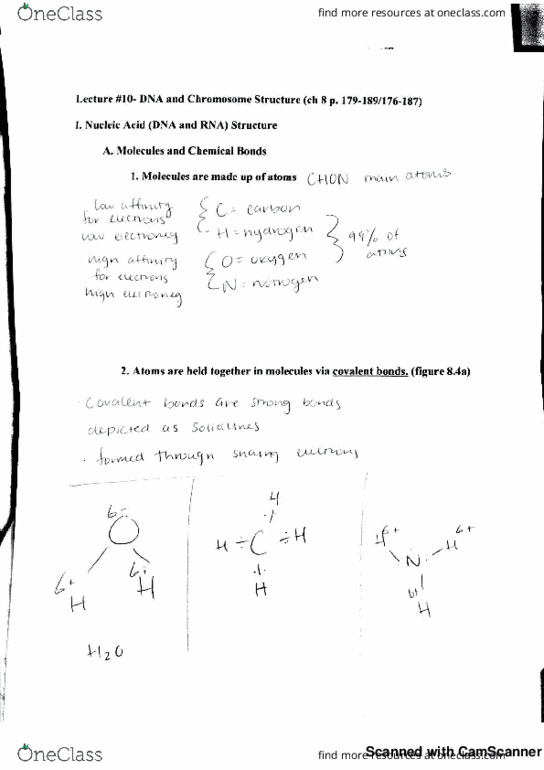 OneClass
find more resources at oneclass.com
Lecture #10- DNA and Chromosome Structure (ch 8 p. 179-189/176-187)
I. Nucleic Acid (DNA and RNA) Structure
A. Molecules and Chemical Bonds
1. Molecules are made up of atoms CHON main atoms
low affinity for electrons low electroneg
C = carbon
H = hydrogen
high affinity for electrons high electroneg
O = oxygen
N = nitrogen
99% of atoms
2. Atoms are held together in molecules via covalent bonds. (figure 8.4a)
· Covalent bonds are strong bonds
depicted as solid lines
· formed through sharing electrons
δ-
O
δ+
H
δ+
H
H2O
H
H ÷ C ÷ H
H
H δ+
H δ+
N
H
OneClass
find more resources at oneclass.com
Scanned with CamScanner